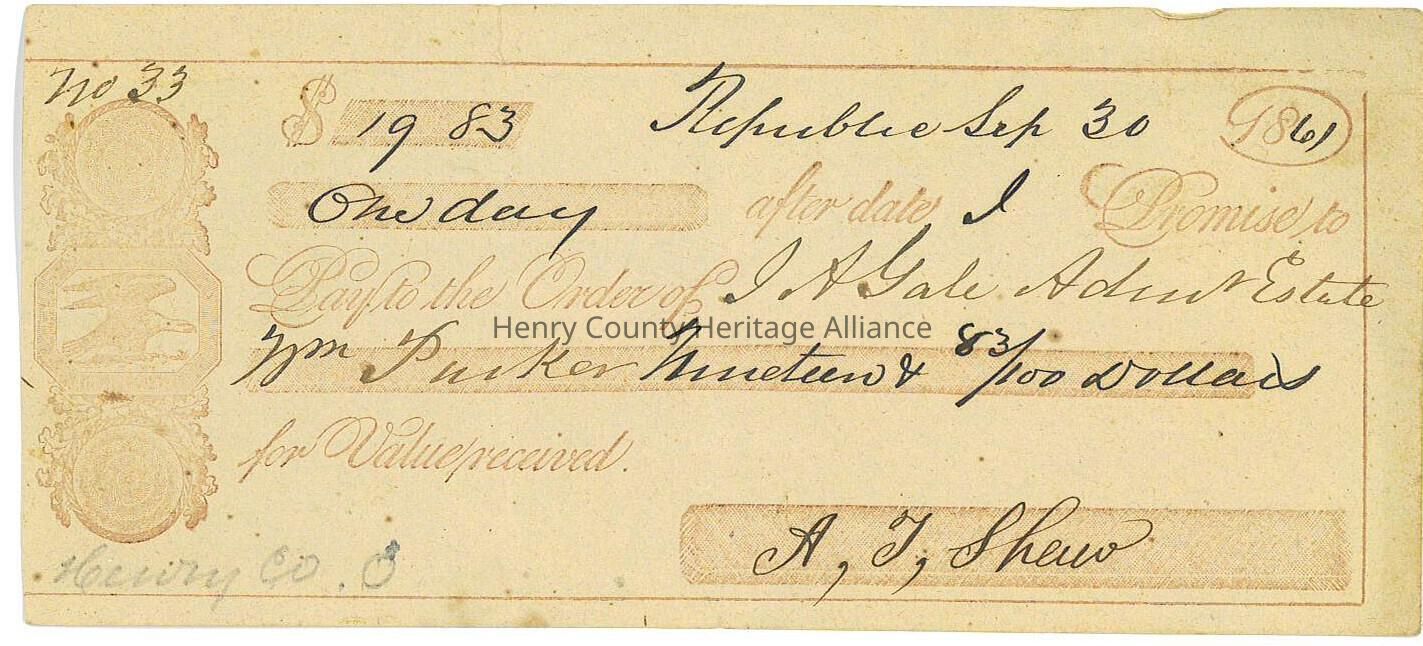 No 33
$ 19 83 Republic Sep 30 1861
One day after date I Promise to
Pay to the Order of J A Gale Admr Estate
Henry County Heritage Alliance
Wm Tucker Nineteen & 83/100 Dollars
for Value received.
A, T, Shaw
Henry Co. O